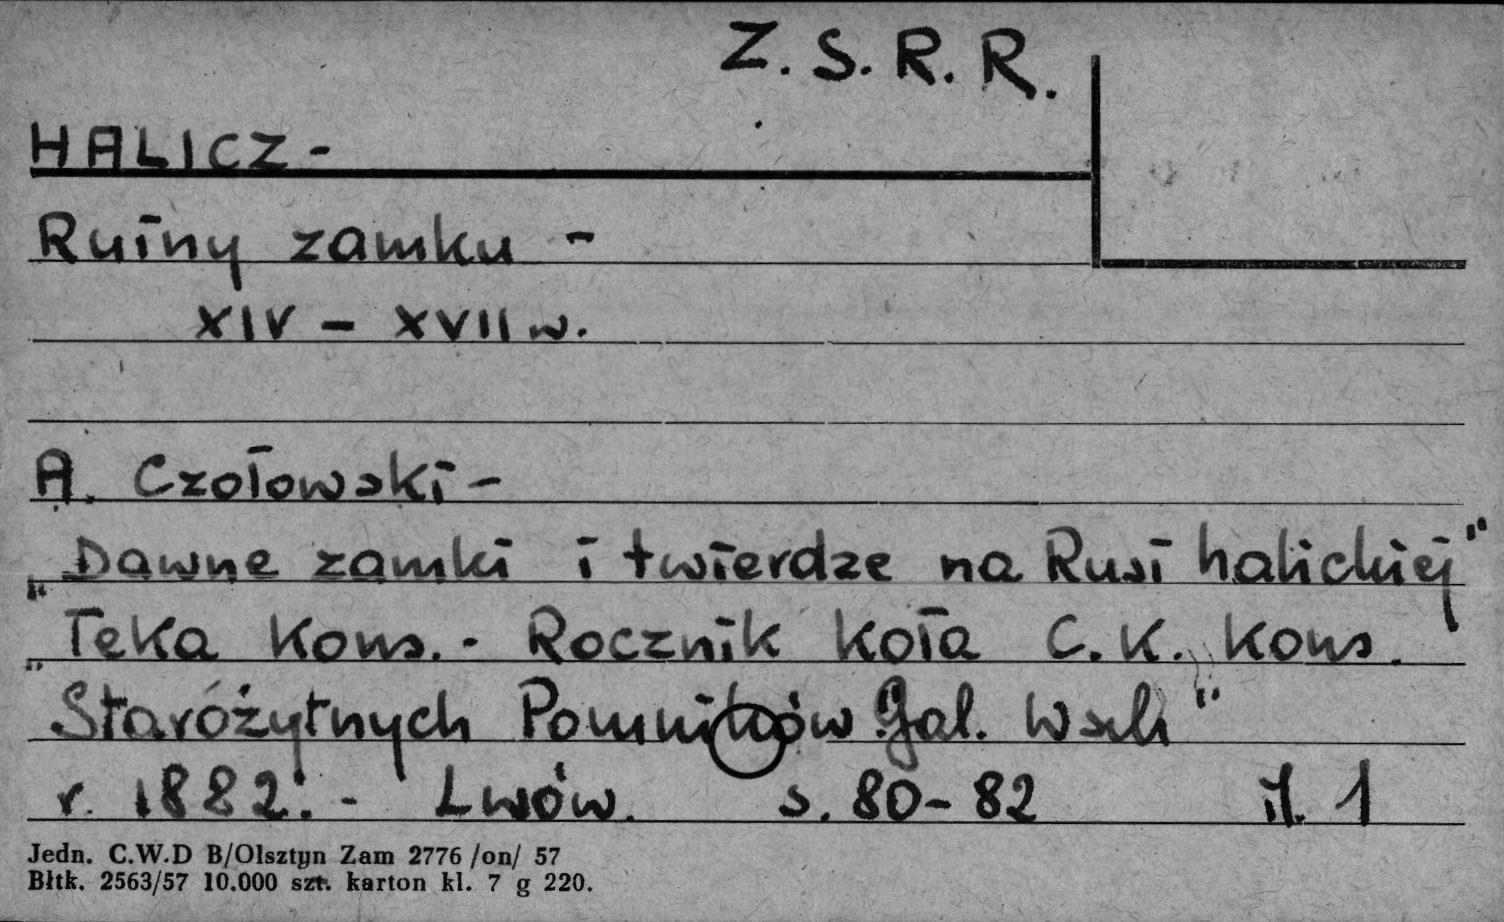 Z. S. R. R.
HALICZ -
Ruiny zamku -
XIV - XVII w.
A. Czołowski -
„Dawne zamki i twierdze na Rusi halickiej"
„Teka Kons. - Rocznik koła C. K. Kons.
Starożytnych Pomników Gal. Wsch"
r. 1882. - Lwów. s. 80-82 il. 1
Jedn. C.W.D B/Olsztyn Zam 2776 /on/ 57
Błtk. 2563/57 10.000 szt. karton kl. 7 g 220.